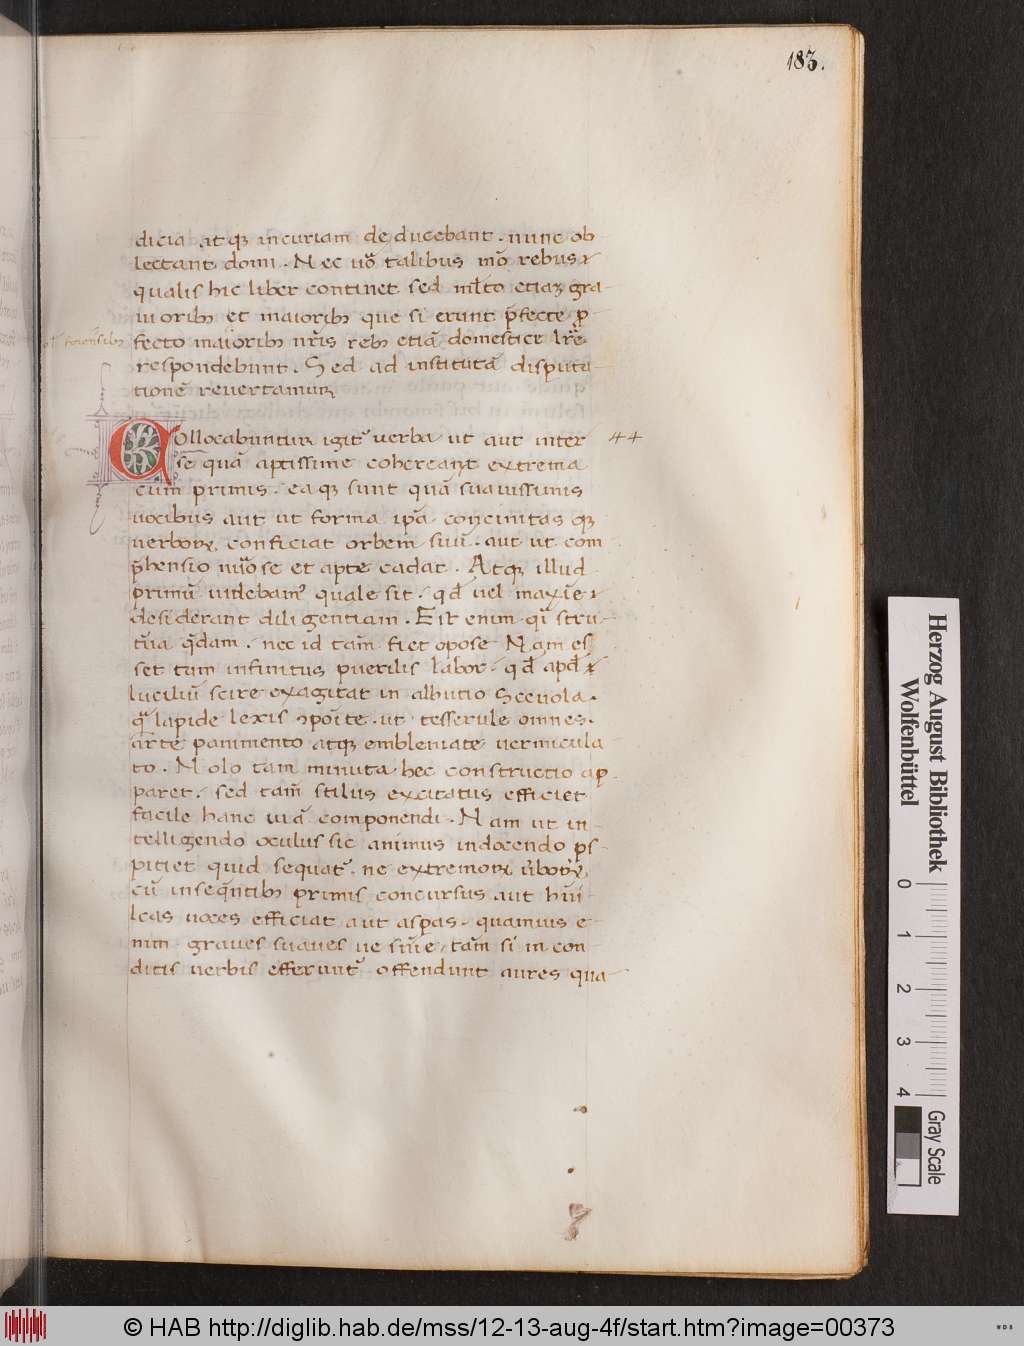 183.
dicia atq3 in curiam deducebant. nunc ob
lectant domi. Nec uo᷑ talibus mo᷑ rebus
qualis hic liber continet sed ml̃to etiaʒ gra
uiorib3 et maiorib3 que si erunt ꝑfecte ꝓ
fecto maiorib3 nr̃is reb3 etiã domestice lr̃e
respondebunt. Sed ad institutã disputa
tionẽ reuertamur
Collocabuntur igit᷑ uerba ut aut inter 44
se quã aptissime cohereant extrema
cum primis. ea q3 sunt quã suauissimis
uocibus aut ut forma ip̃a concinitas q3
uerborꝝ conficiat orbem suũ. aut ut com
p̃hensio nũose et apte cadat. Atq3 illud
primũ uidebam᷒ quale sit. qd̃ uel maxĩe
desiderant diligentiam. Fit enim qĩ stru
ct̃ia q̃dam. nec id tam̃ fiet opose Nam es
set tum infinitus puerilis labor. qd̃ apd̃
luciliũ scite exagitat in albutio Sceuola.
q̃ lapide lexis ꝯpoĩte. ut tesserule omnes.
arte pauimento atq3 emblemate uermicula
to. Nolo tam minuta hec constructio ap
paret. sed tam̃ stilus excitatus efficiet
facile hanc uiã componendi. Nam ut in
telligendo oculus sic animus in docendo ꝓs
piciet quid sequat᷑. ne extremorꝝ ũborꝝ
cũ inseq̃ntib3 primis concursus aut hui
lcas uoces efficiat aut asp̲as. quamuis e
nim graues suaues ue sñie. tam̃ si in con
ditis uerbis efferunt᷑ offendunt aures qua
Herzog August Bibliothek
Wolfenbüttel
0 1 2 3 4
Gray Scale
© HAB http://diglib.hab.de/mss/12-13-aug-4f/start.htm?image=00373